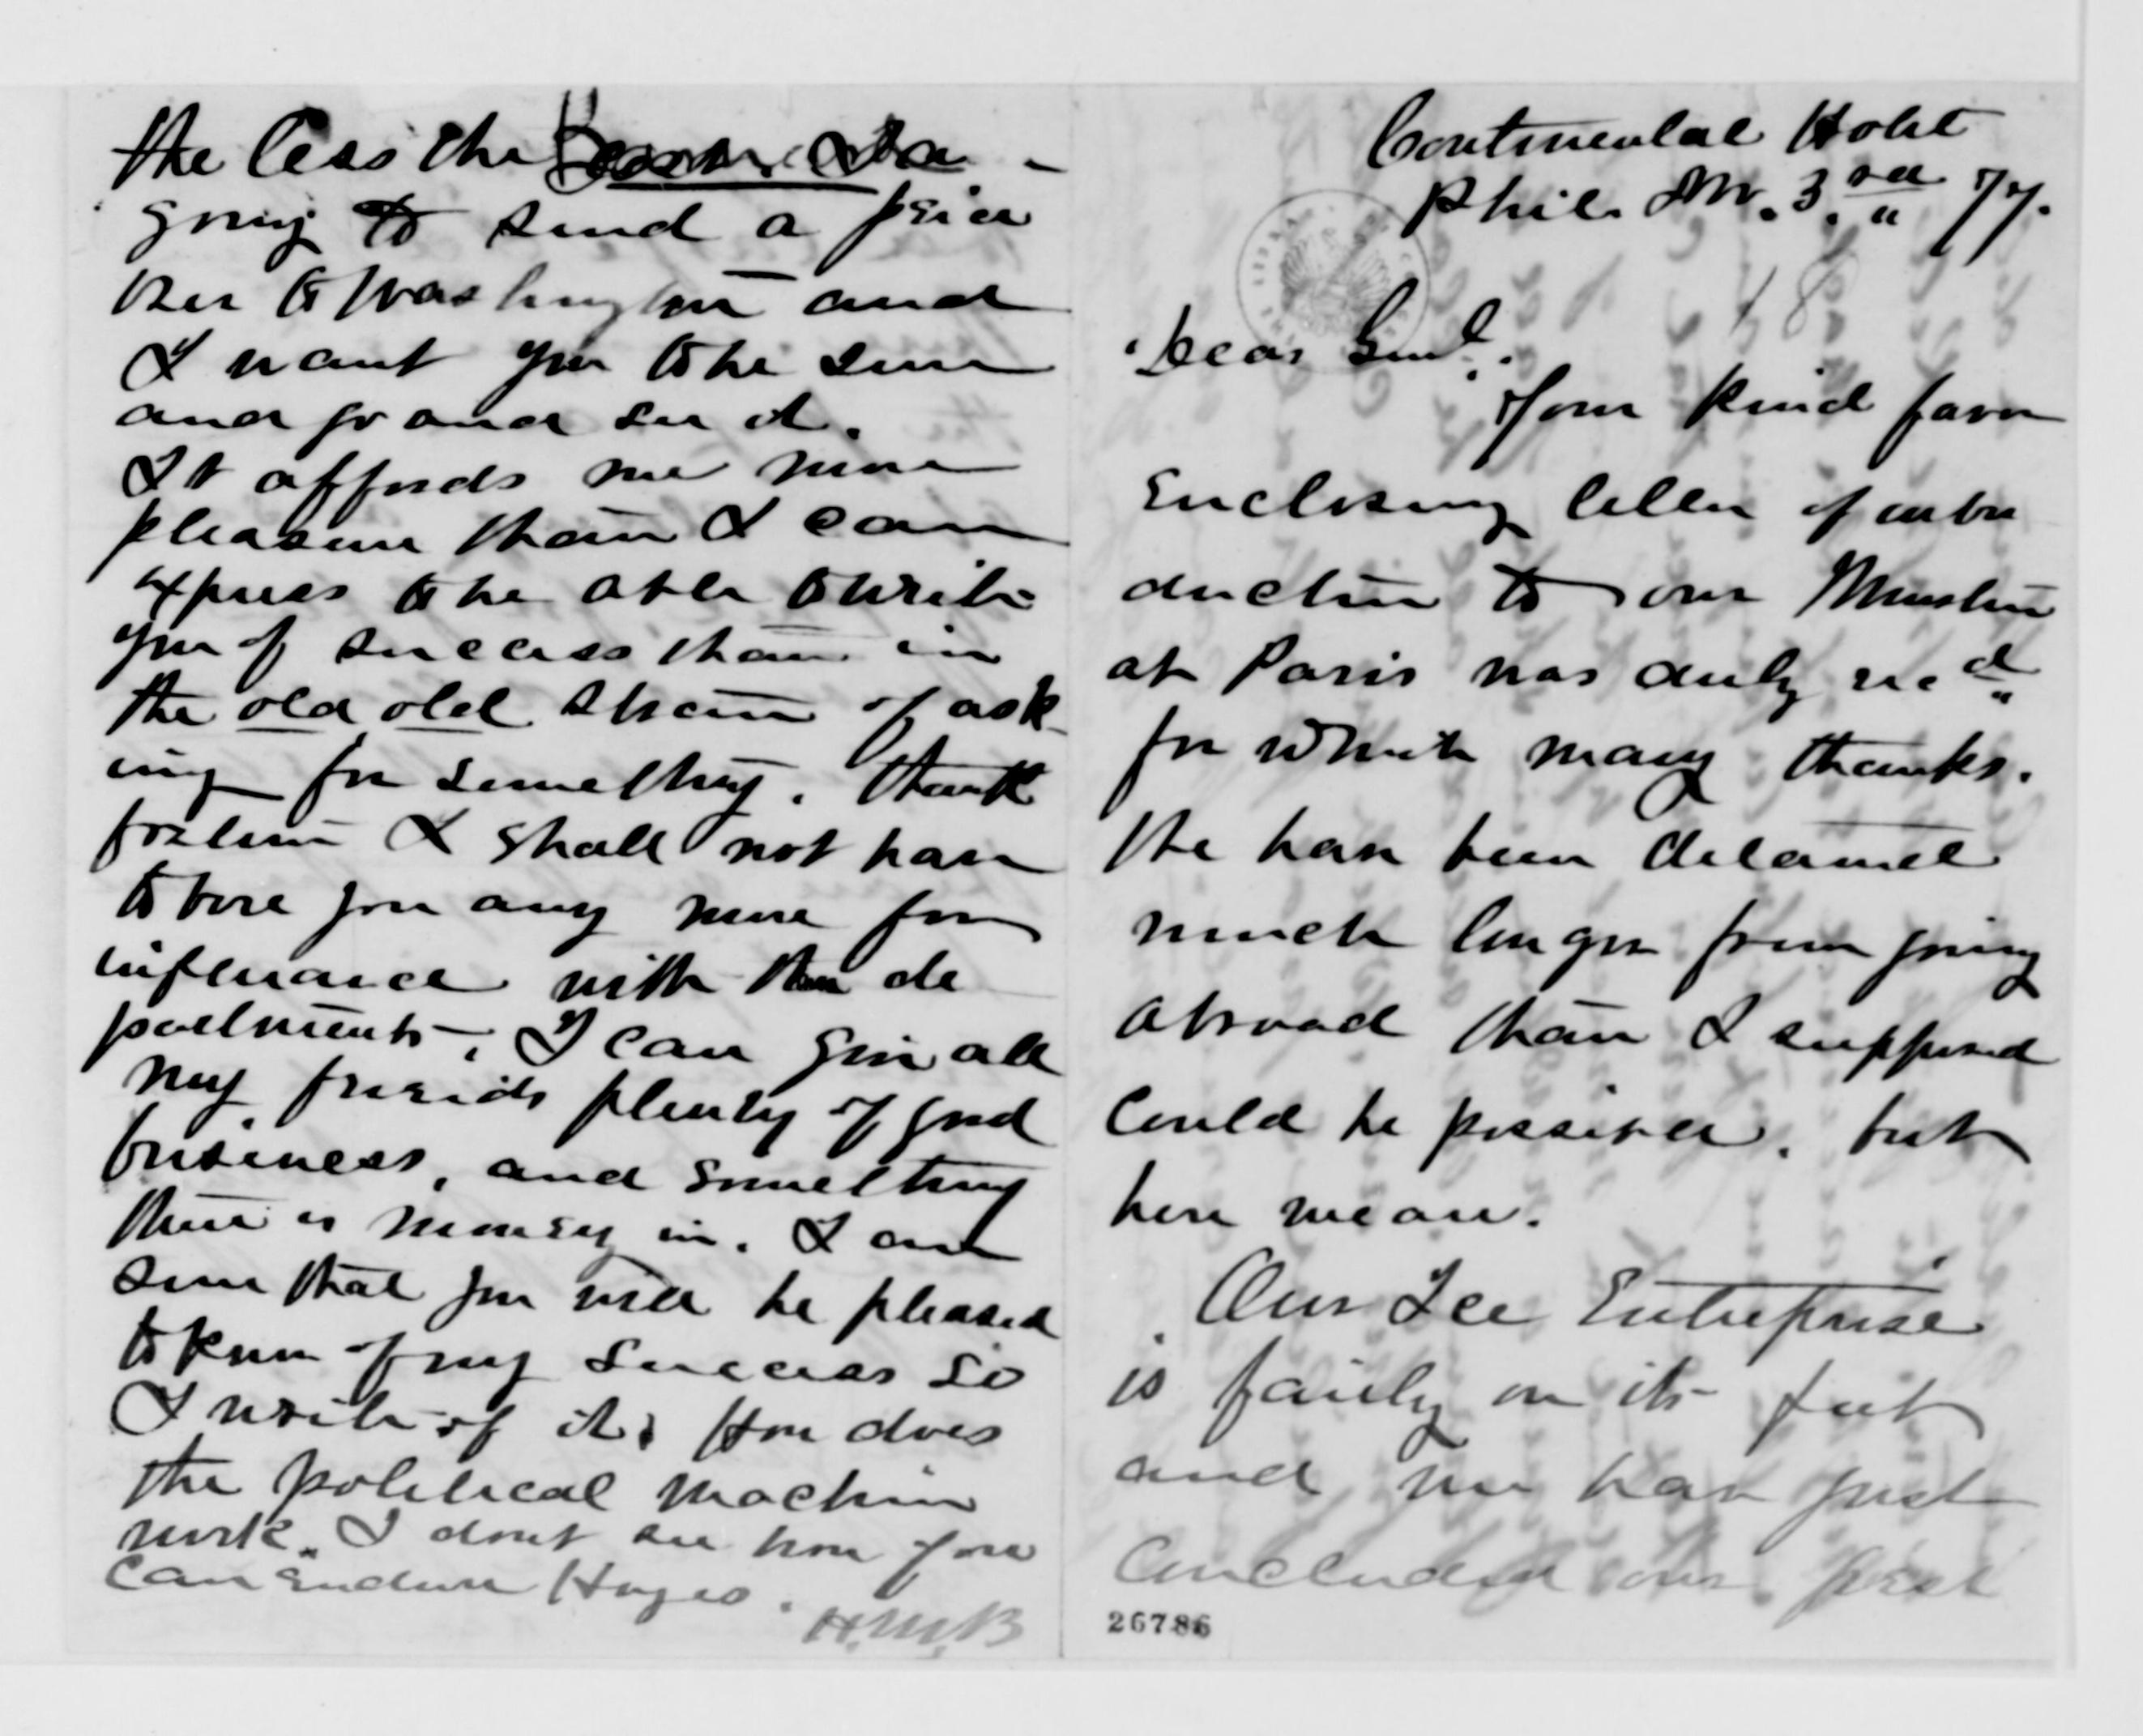 Continental Hotel
Phil. 3rd 77.
Dear Genl.
Your kind favor
Enclosing letter of intro
duction to our Minister
at Paris was duly recd
for which many thanks.
have been detained
much longer from going
abroad than I supposed
Could be possible. but
here we are.
Our Ice Enterprise
is fairly on its feet
and we have just
Concluded our first
the less the
going to send a
to Washington and
I want you to be sure
and go and see it.
It affords me more
pleasure than I can
express to be able to write
you of success than in
the old old strain of ask
ing for something. Thank
fortune I shall not have
to bore you any more for
influence with the de
partments. I can give all
my friends plenty of good
business, and something
there is money in. I am
sure that you will be pleased
to know of my success so
I write of it. How does
the political machine
work. I dont see how you
can endure Hayes.